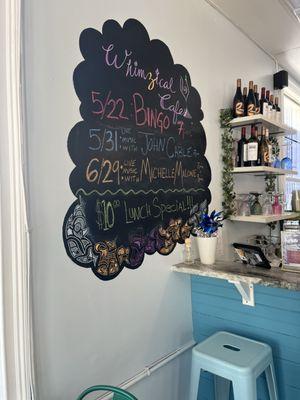 Whimzical
Cafe
5/22 BINGO 7
5/31: LIVE MUSIC WITH JOHN CABLE
6/29: LIVE MUSIC WITH MICHELLE MALONE
$10.00 LUNCH SPECIAL!!!